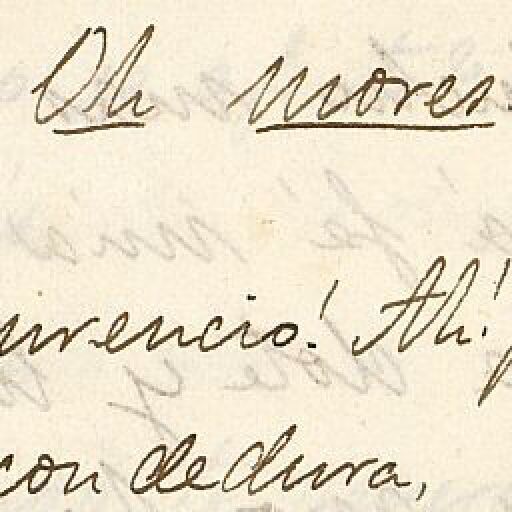 Oh mores
urencio! Ah!
con dedura,